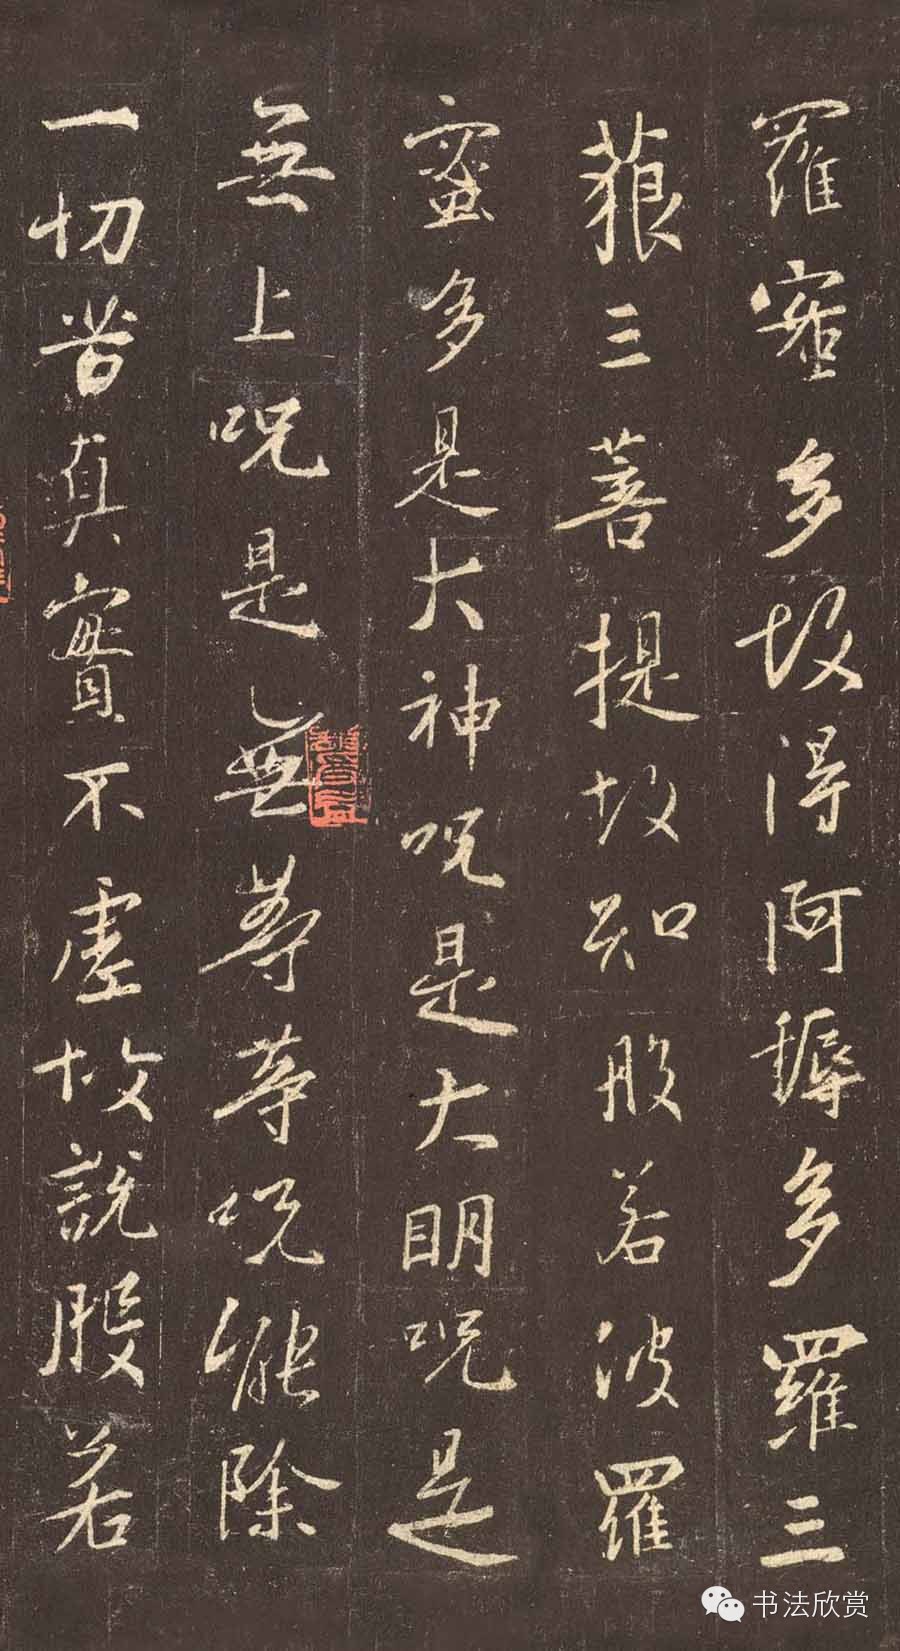 羅蜜多故得阿耨多羅三
藐三菩提故知般若波羅
蜜多是大神呪是大明呪是
無上呪是無等等呪能除
一切苦真實不虛故説般若
书法欣赏